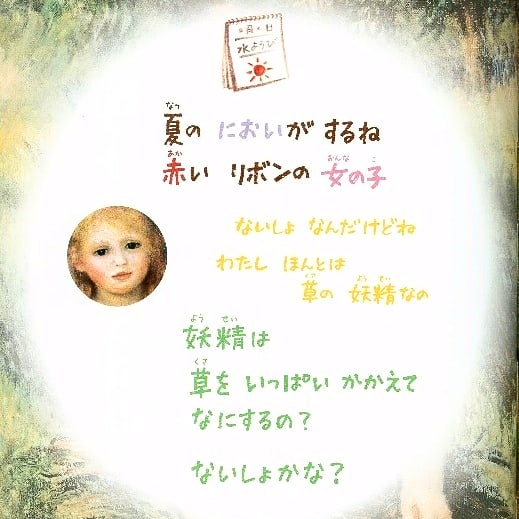 水ようび
夏の においが するね
赤い リボンの 女の子
ないしょ なんだけどね
わたし ほんとは
草の 妖精なの
妖精は
草を いっぱい かかえて
なにするの？
ないしょかな？